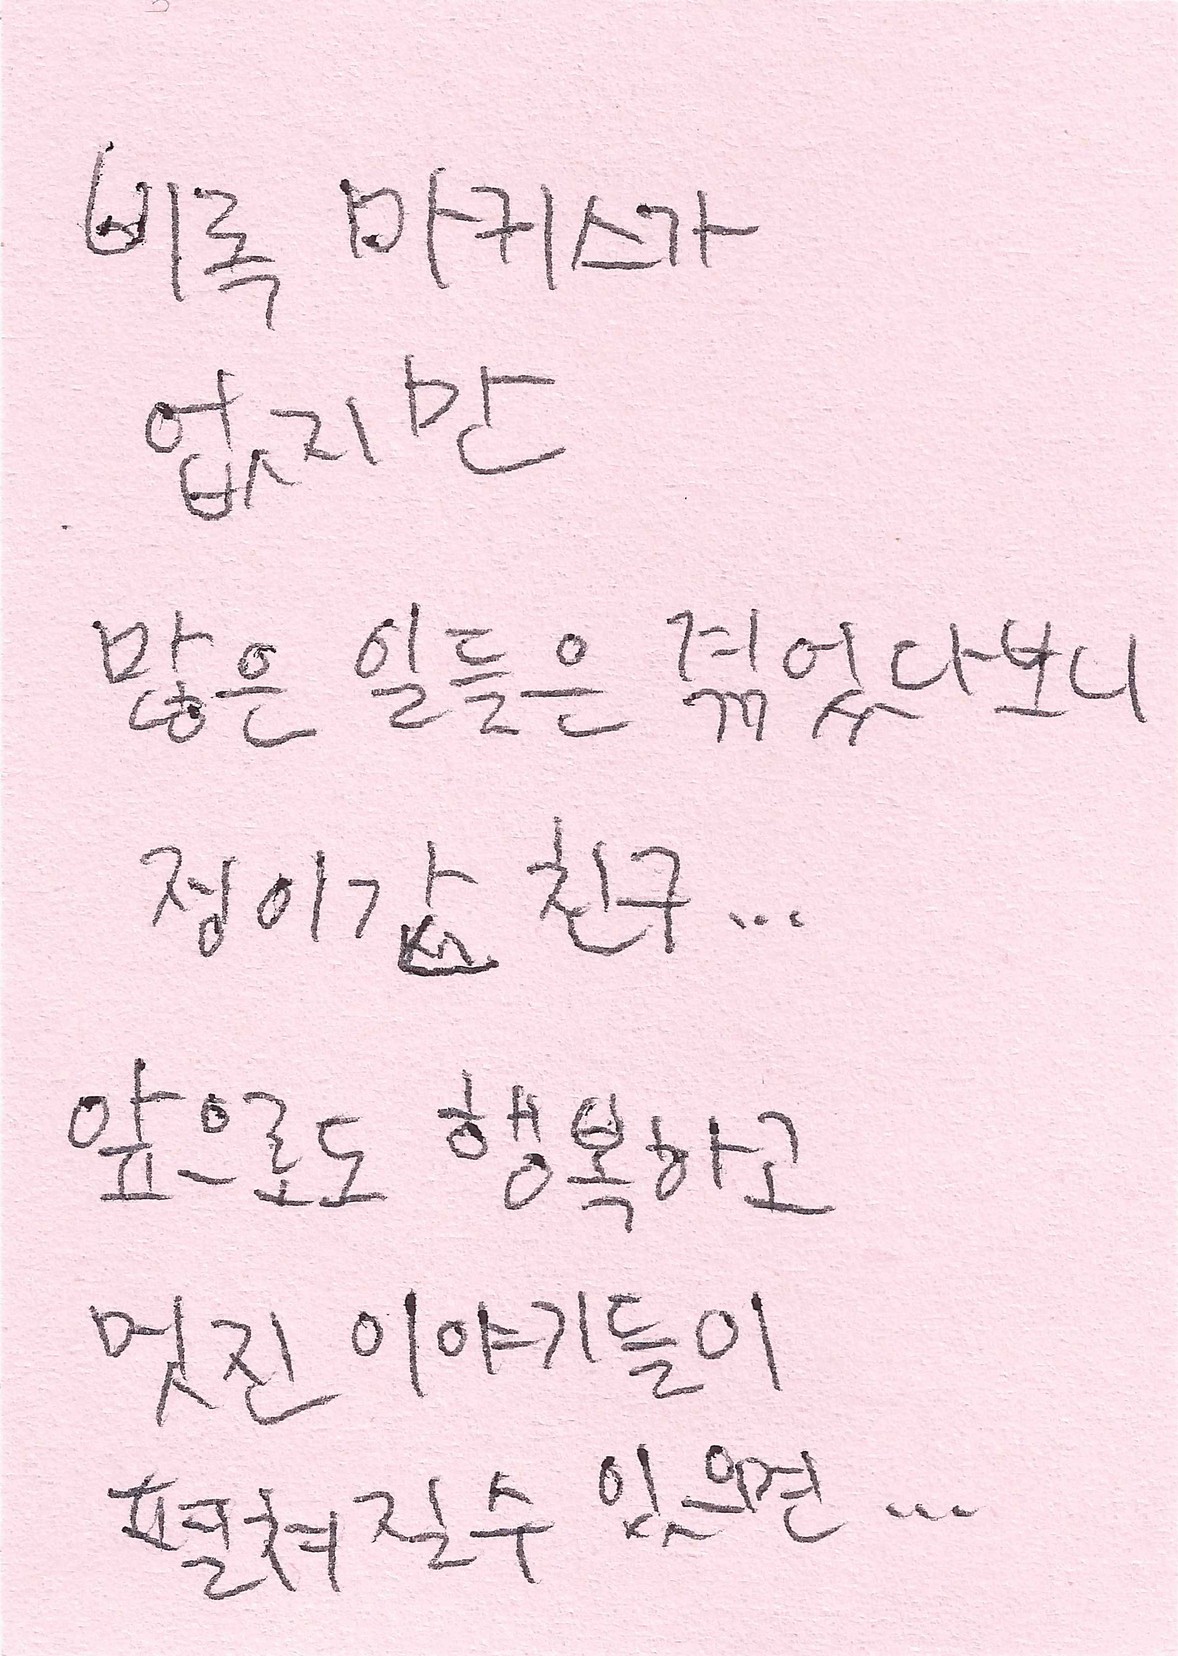 비록 마퀴스가
없지만
많은 일들은 겪었다보니
정이갔 친구...
앞으로도 행복하고
멋진 이야기들이
펼쳐질수 있으면...